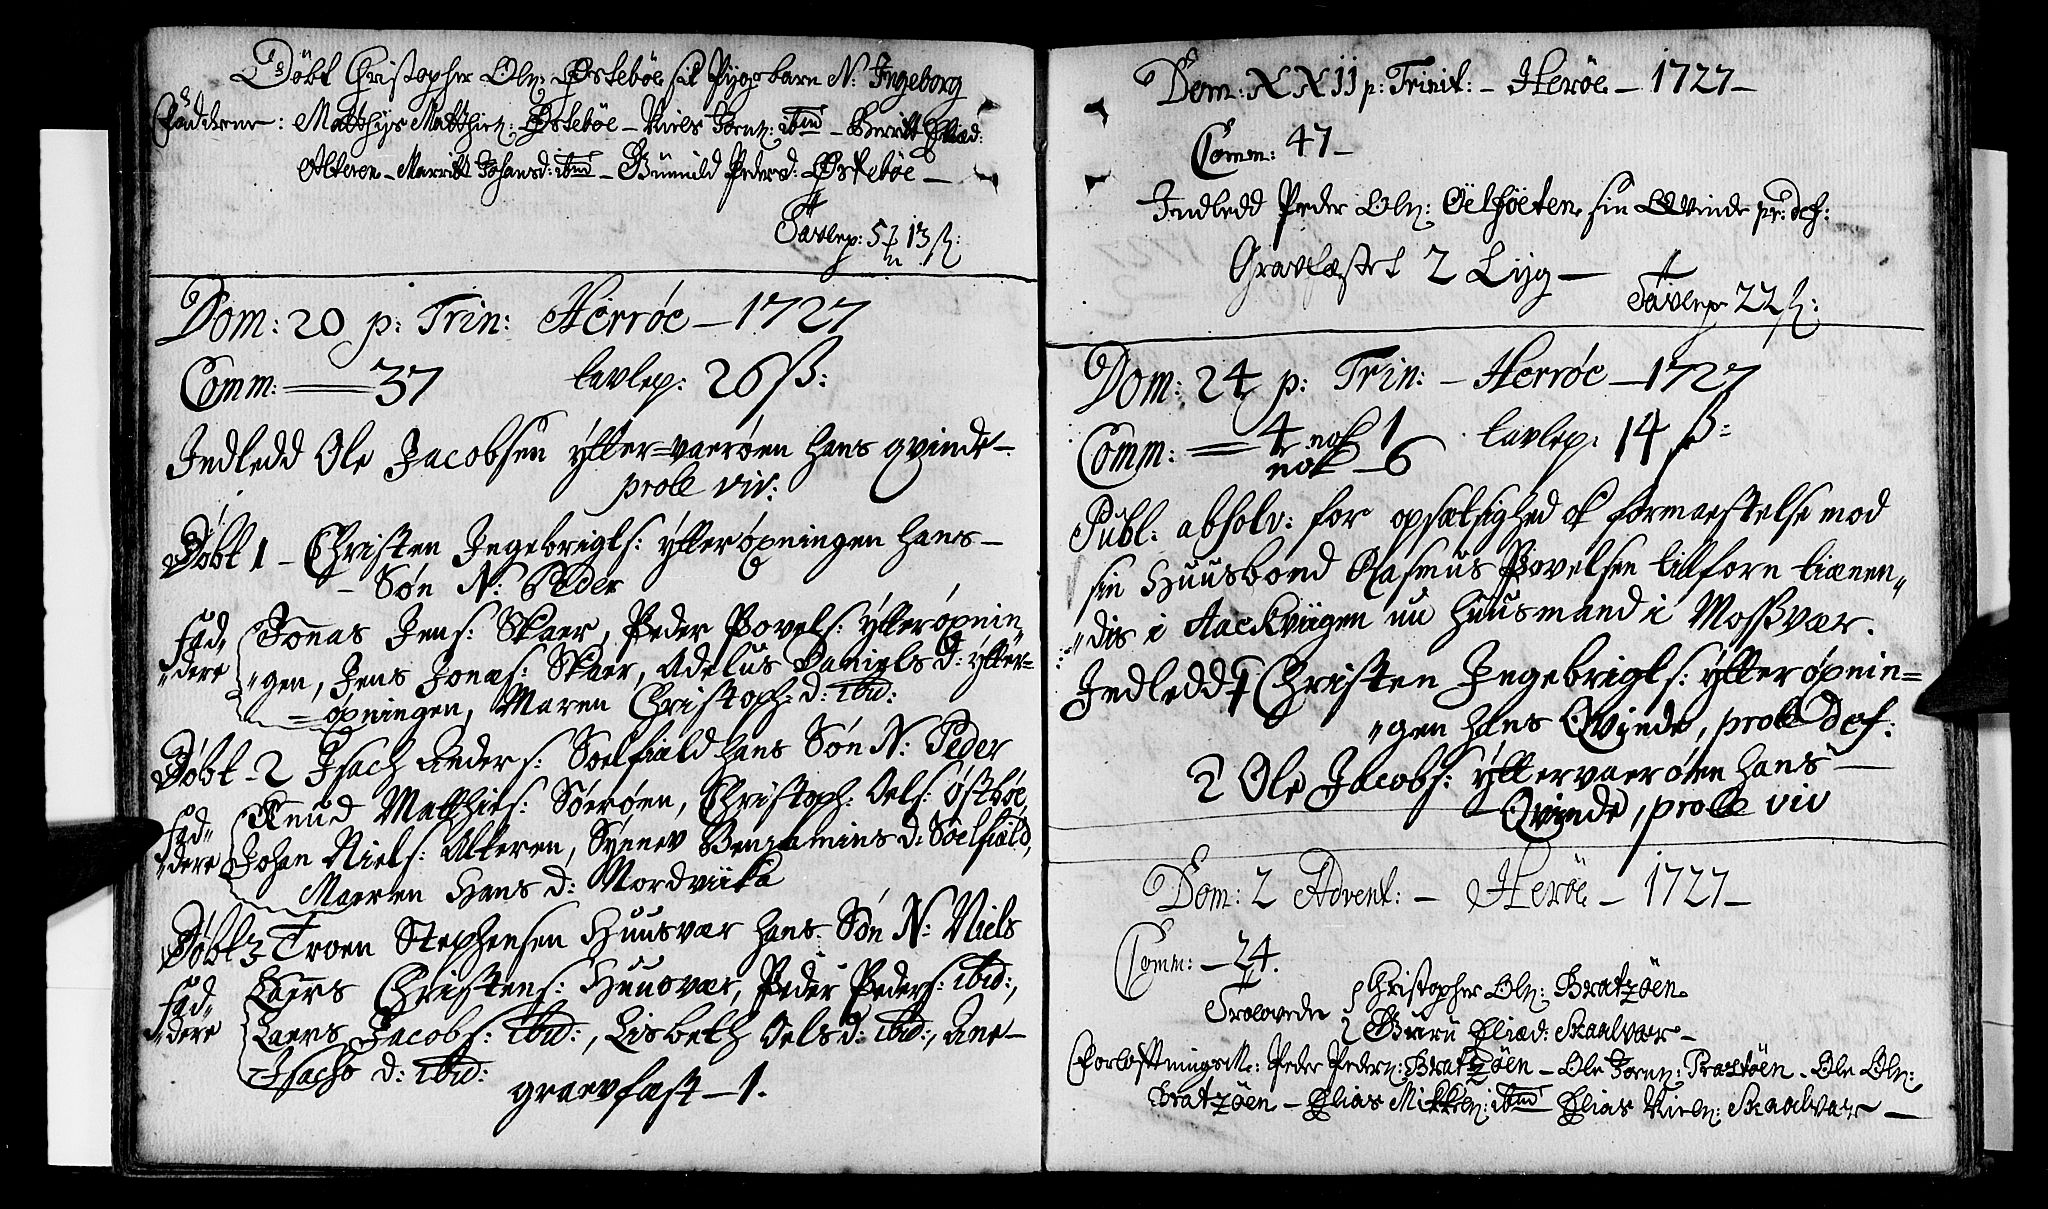 Döbt Christopher Ols: Östeböe sit Pijgebarn N: Ingeborg
Faddrene: Matthys Matthies: Östeböe – Niels Joens: ibid – Berritt Eliæd:
Alteren – Marritt Johansd: ibid – Gunnild Pedersd: Östeböe –
Tavlep: 5 13 ß:
Dom: 20 p: Trin: Herröe – 1727
Comm: 37 tavlep: 26 ß:
Indledd Ole Jacobsen ytter=vaerøen hans qvinde –
prole viv:
Døbt 1 – Christen Ingebrigts: ytterøpningen hans –
– Søn N: Peder
fad„ Jonas Jens: Skaer, Peder Povels: ytterøpnin„
„dere „gen, Jens Jonæs: Skaer, Adelus Daniels d: ytter=
=opningen, Maren Christoph: d: ibid:
Døbt – 2 Isach Anders: Soelfiæld hans Søn N: Peder
fad„ Knud Matthies: Sörøen, Christoph: Oels: Østbøe,
„dere Johan Niels: Alteren, Synnev Benjamins d: Söelfiæld,
Maeren Hans d: Nordviika
Døbt 3 Troen Stephensen Huusvær hans Søn N: Niels
fad„ Laers Christens: Huusvær, Peder Peders: ibid:,
„dere Laers Jacobs: ibid:, Lisbeth Oels d: ibid:, Ane –
Isachs d: ibid:
graevfæst – 1.
Dom: XXII p: Trinit: – Heröe – 1727 –
Comm: 47 –
Indledd Peder Ols: sin Qvinde pr: def:
Gravfæstet 2 Lijg –
Tavlep 22 ß:
Dom: 24 p: Trin: – Herröe – 1727
Comm: = 4 nok 1 tavlep: 14 ß:
nok – 6
Publ: absolv: for opsætsighed ok formaestelse mod
sin Huusbond Rasmus Povelsen tillforn tiænen„
„dis i Aackviigen nu huusmand i Mossvær.
Indledd 1 Christen Ingebrigts: ytterøpnin=
„gen hans Qvinde, prole def:
2 Ole Jacobs: yttervaerøen hans –
Qvinde, prole viv
Dom: 2 Advent: – Heröe – 1727 –
Comm: – 24.
Trolovede Christopher Ols: Bratzöen
Guru Eliæd: Skaalvær –
Forlofningsm: Peder Peders: Bratzöen – Ole Joens: Præstöen – Ole Ols:
Bratzöen – Elias Mikkels: ibid – Elias Niels: Skaalvær –